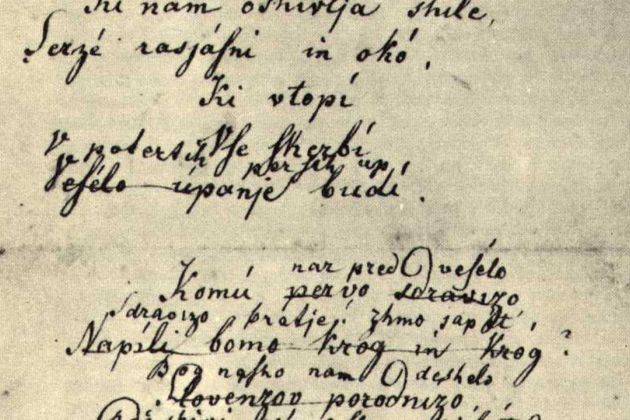 Ki nam oshivlja shile,
Serzé rasjáſni in okó,
Ki vtopí
Vſe ſkerbí
V potertih perſih up
Veſélo úpanje budí.
nar pred veſélo
Komú pervo sdravizo
Sdravizo bratje! zhmo sapét',
Napíli bomo krog in krog?
Bog naſho nam deshelo
Slovenzov porodnizo